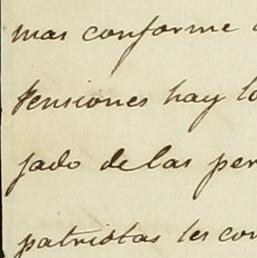 mas conforme
tensiones hay lo
jado de las per
patriotas les con